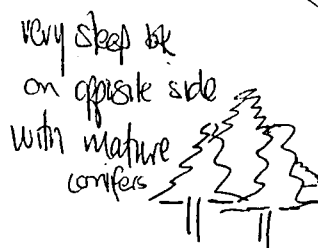 very steep bk
on opposite side
with mature
conifers